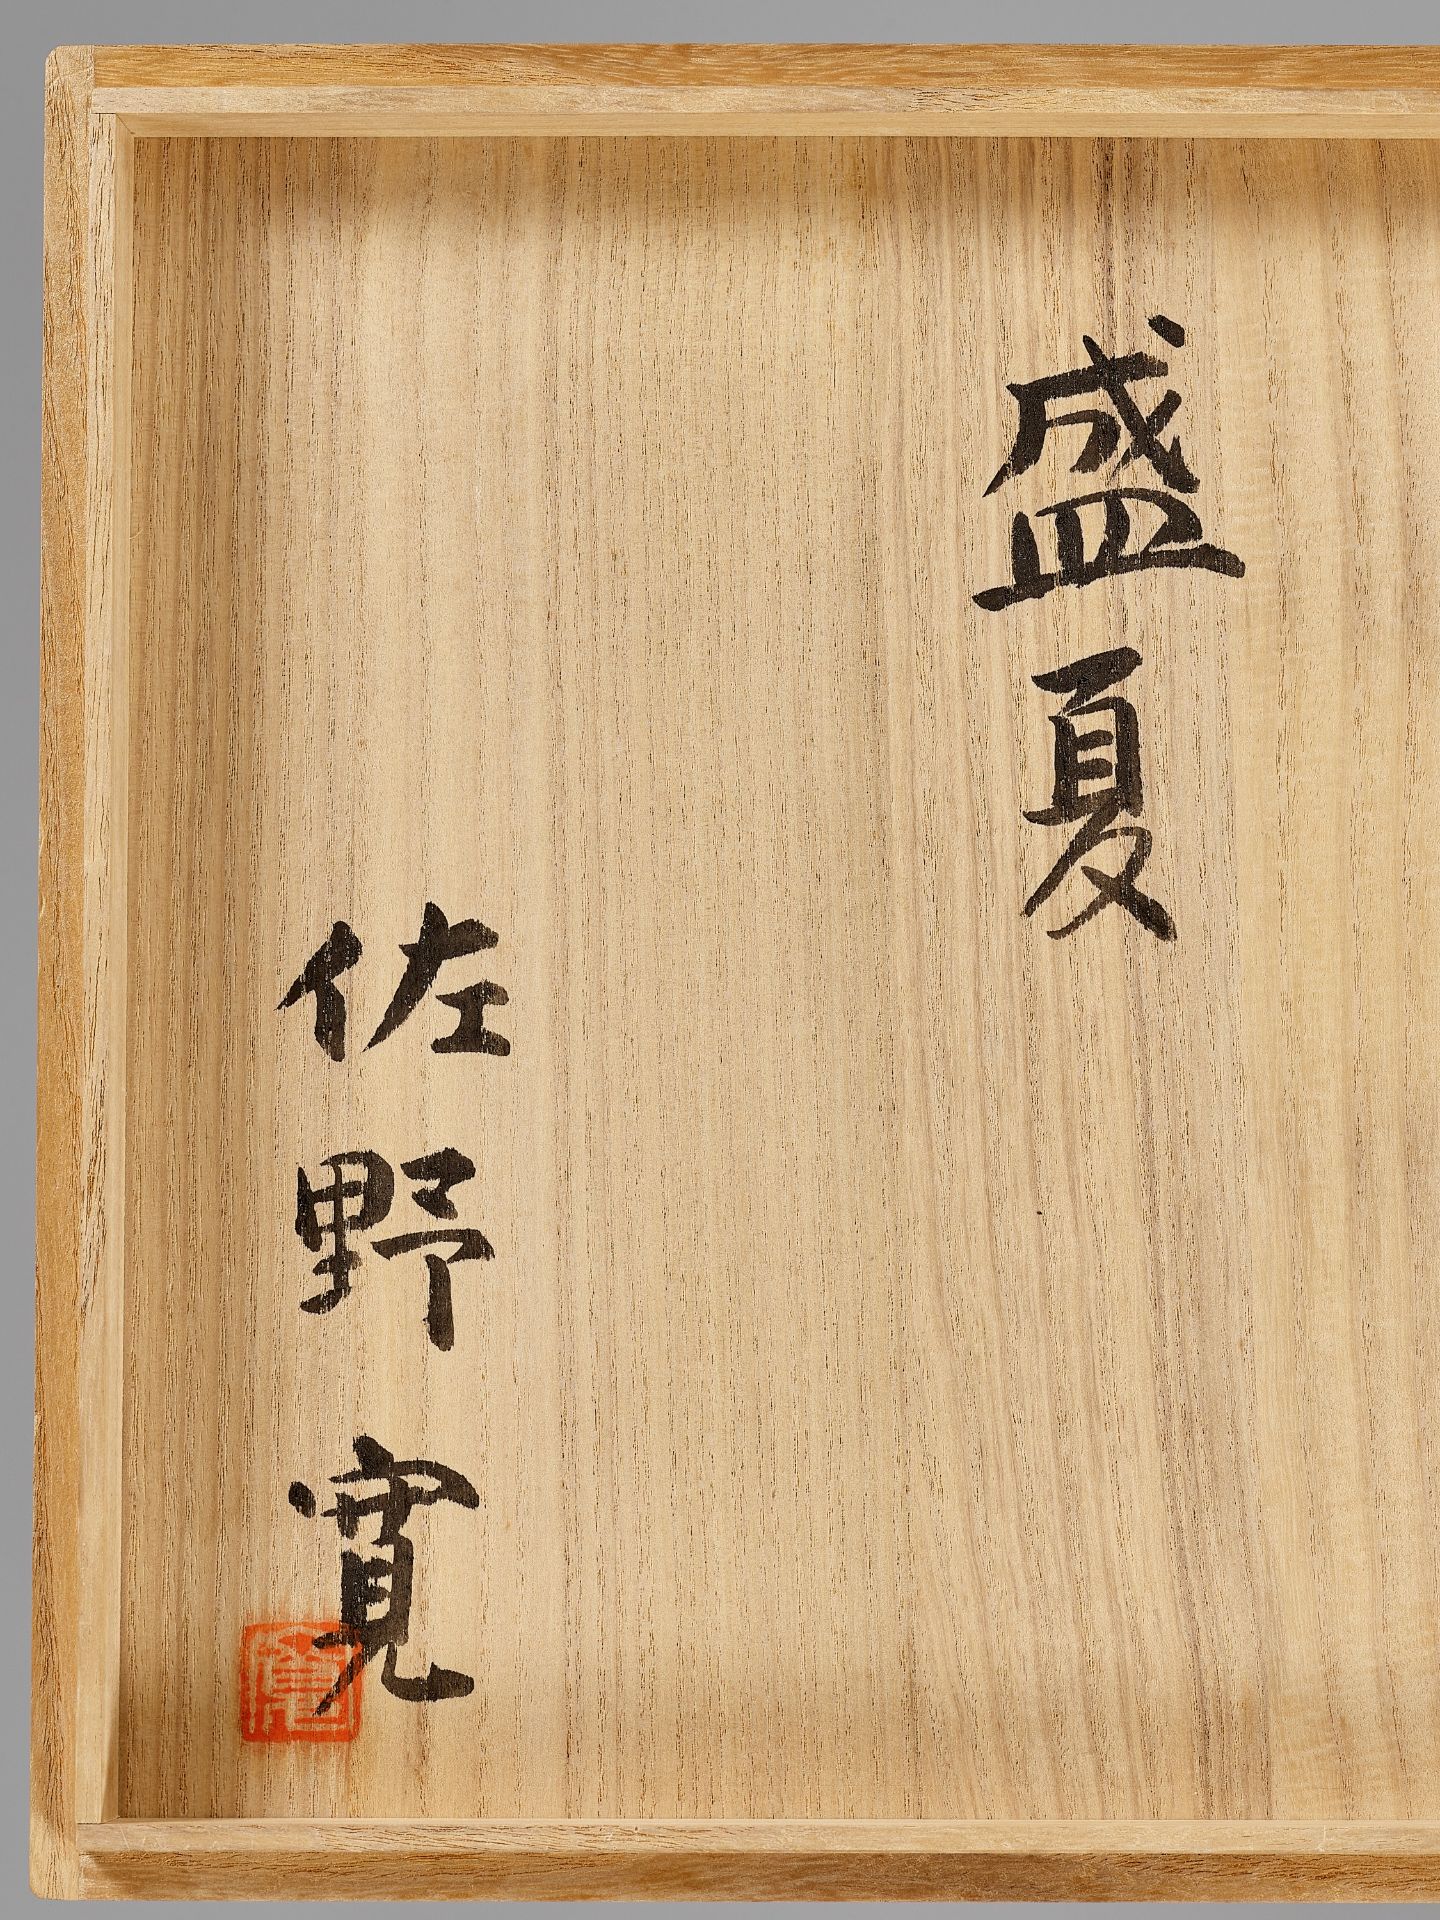 盛夏
佐野寛